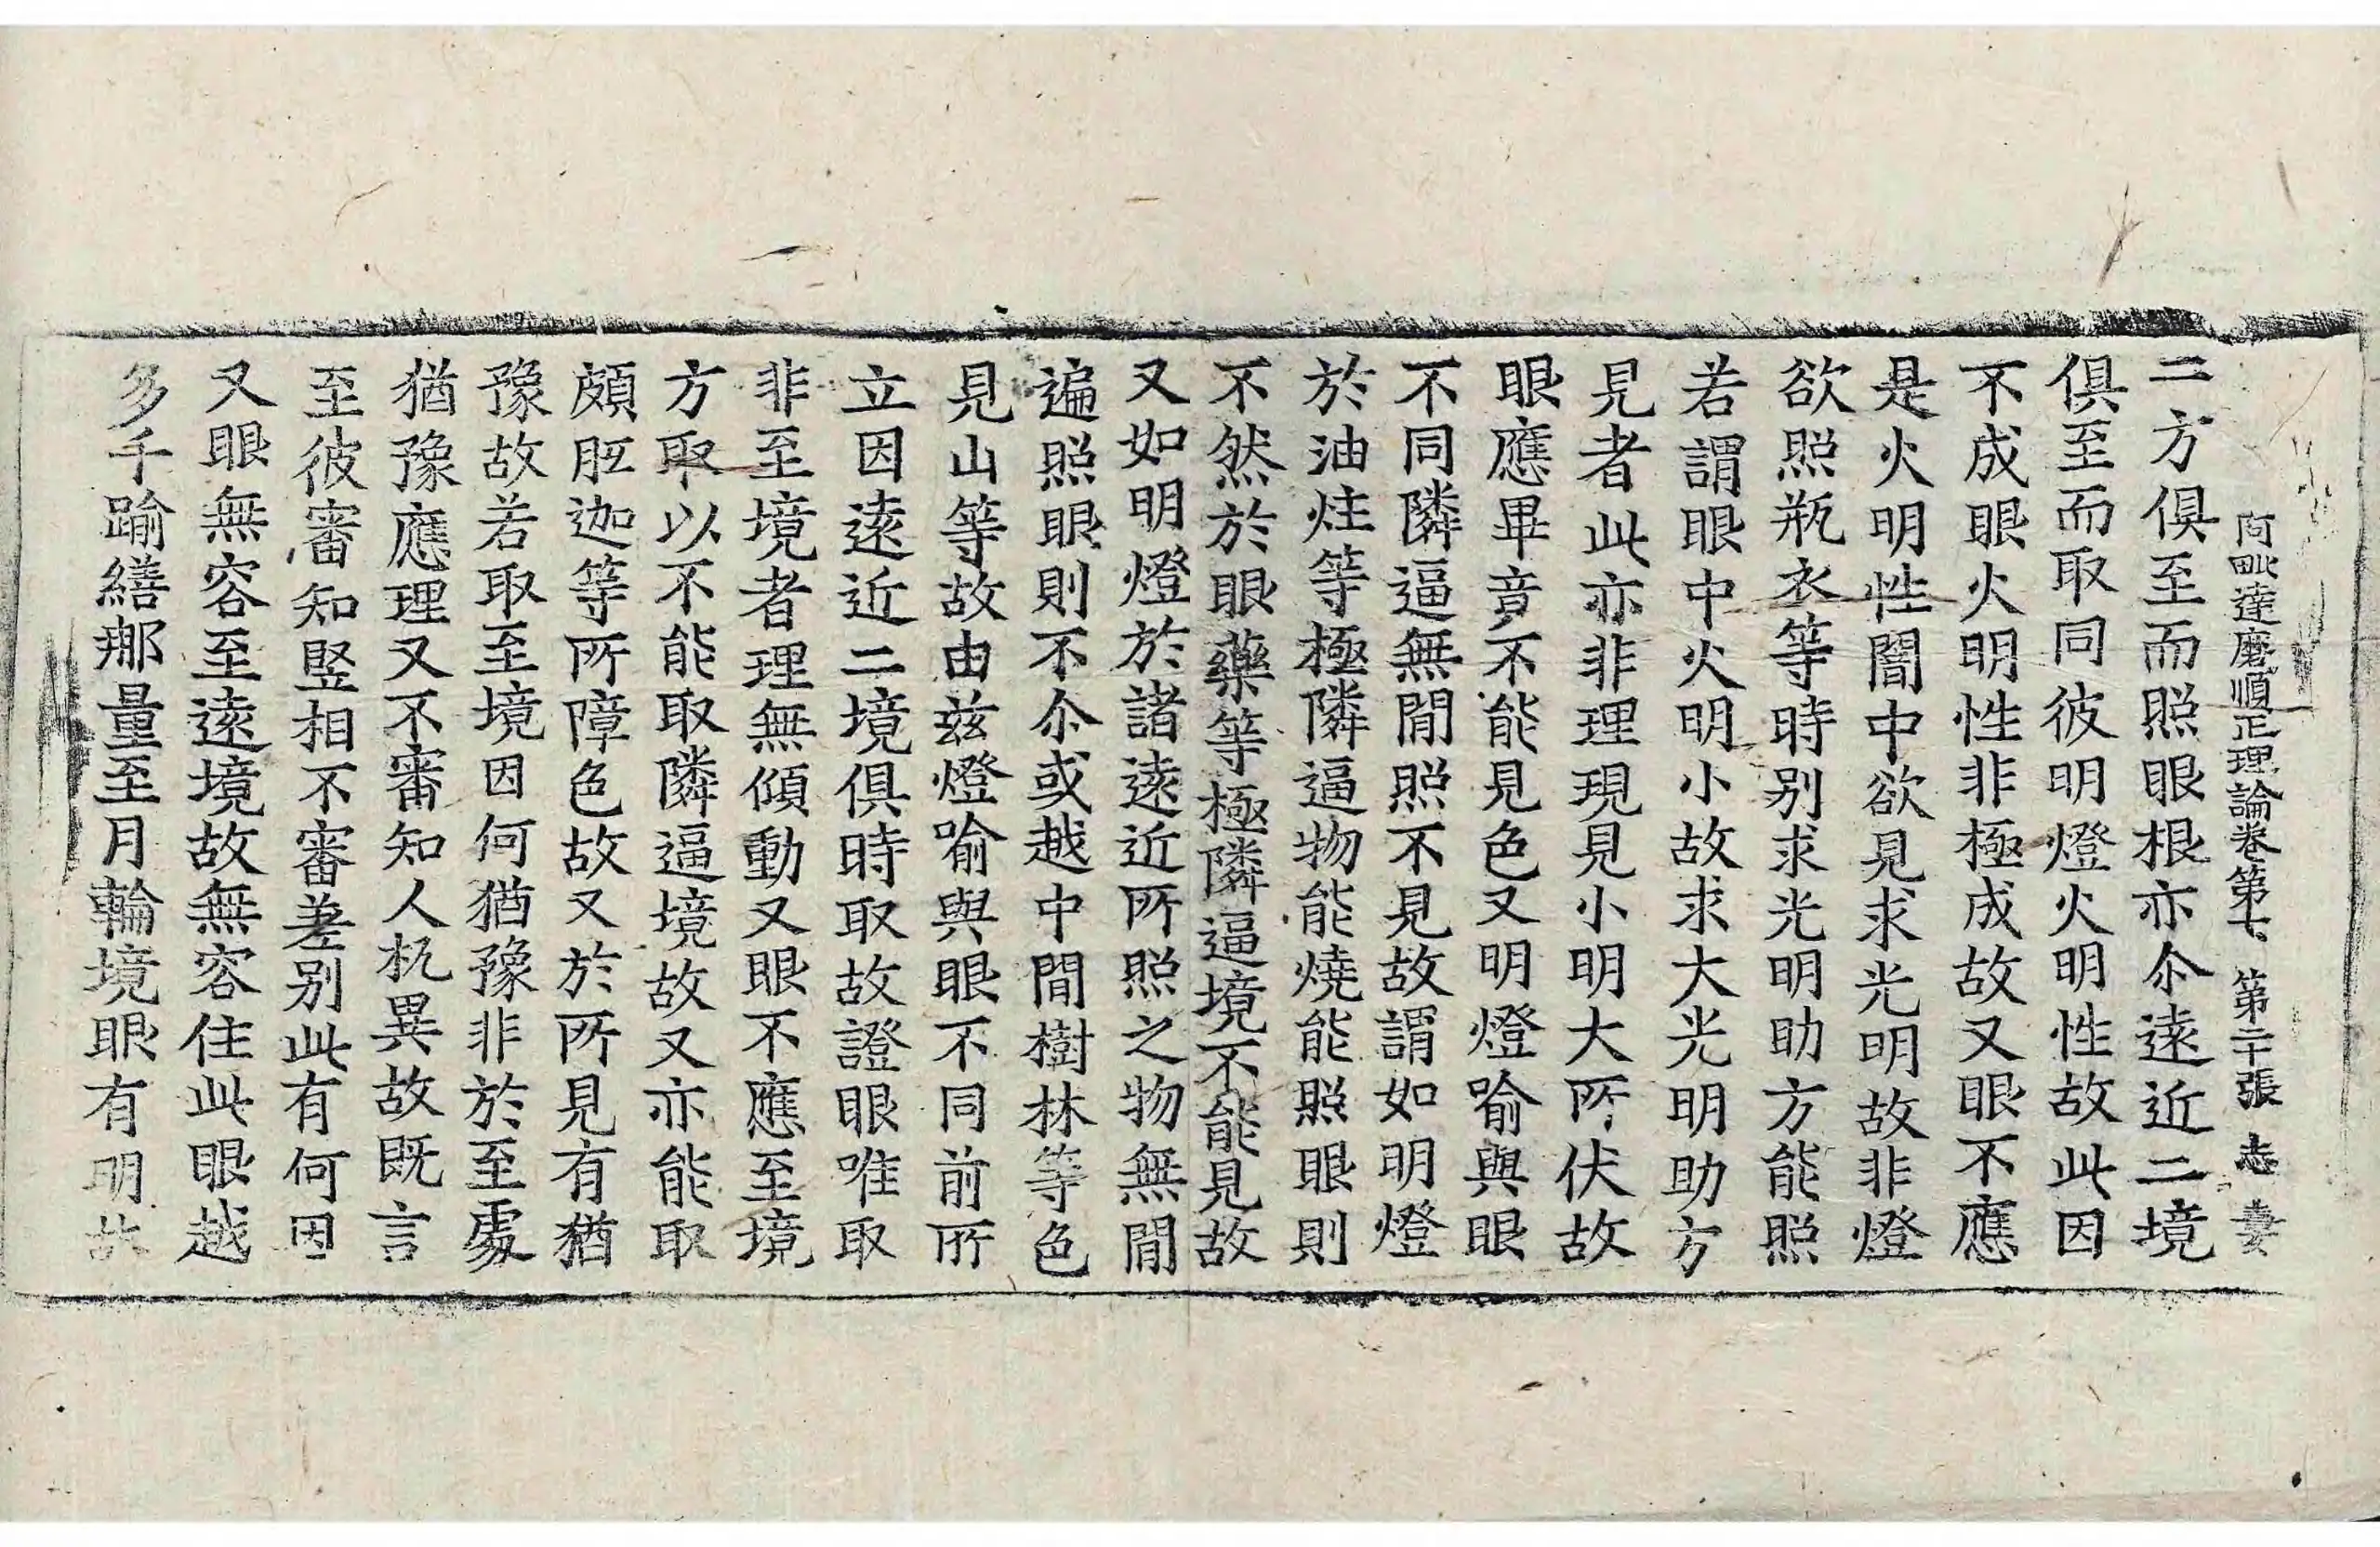 阿毗達磨順正理論卷第七 第二十張 志 妻
二方俱至而照眼根亦尒遠近二境
俱至而取同彼明燈火明性故此因
不成眼火明性非極成故又眼不應
是火明性闇中欲見求光明故非燈
欲照瓶衣等時別求光明助方能照
若謂眼中火明小故求大光明助方
見者此亦非理現見小明大所伏故
眼應畢竟不能見色又明燈喻與眼
不同隣逼無閒照不見故謂如明燈
於油炷等極隣逼物能燒能照眼則
不然於眼藥等極隣逼境不能見故
又如明燈於諸遠近所照之物無閒
遍照眼則不尒或越中閒樹林等色
見山等故由兹燈喻與眼不同前所
立因遠近二境俱時取故證眼唯取
非至境者理無傾動又眼不應至境
方取以不能取隣逼境故又亦能取
頗胝迦等所障色故又於所見有猶
豫故若取至境因何猶豫非於至處
猶豫應理又不審知人杌異故既言
至彼審知竪相不審差別此有何因
又眼無容至遠境故無容住此眼越
多千踰繕那量至月輪境眼有明故